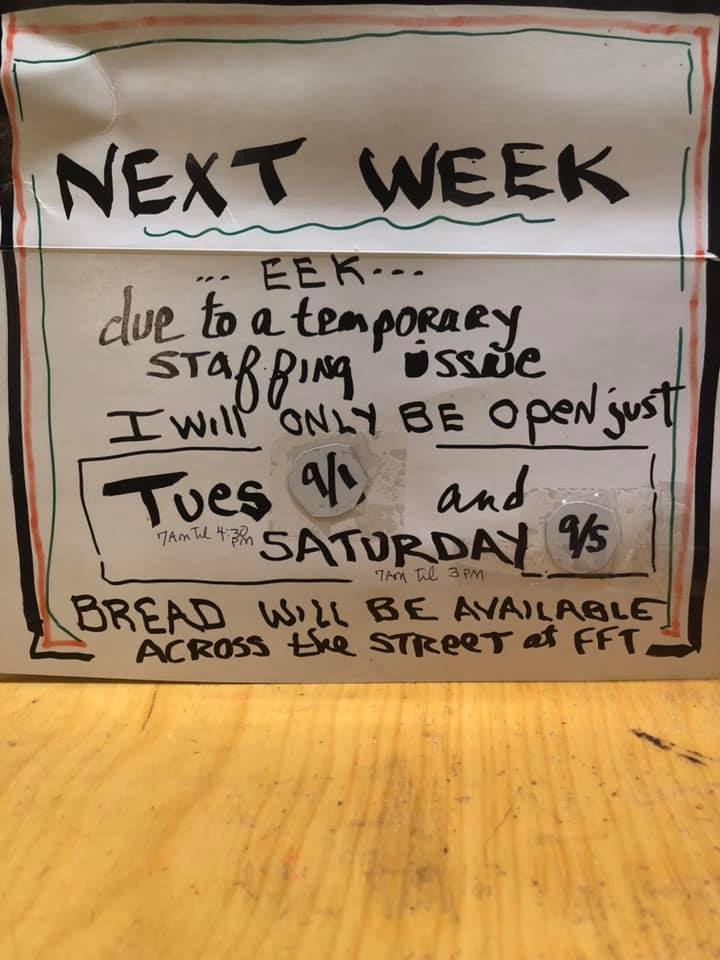 NEXT WEEK
... EEK...
due to a temporary
STAffing issue
I will ONLY BE open just
Tues 9/1 and
7AM til 4:30 PM
SATURDAY 9/5
7AM til 3 PM
BREAD WILL BE AVAILABLE
ACROSS the STREET at FFT